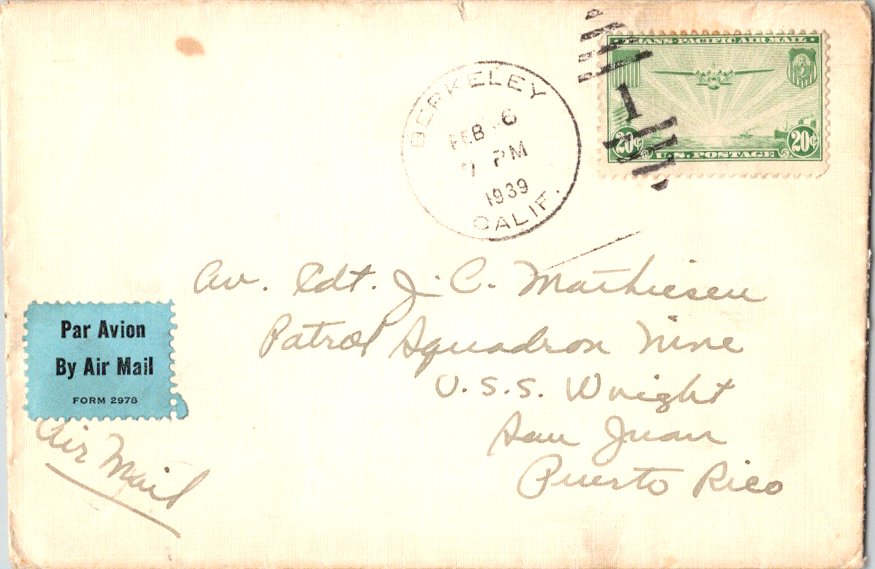 BERKELEY
FEB 6
7 PM
1939
CALIF.
1
TRANS-PACIFIC AIR MAIL
20¢ 20¢
U.S. POSTAGE
Av. Cdt. J. C. Mathiesen
Patrol Squadron Nine
U.S.S. Wright
San Juan
Puerto Rico
Par Avion
By Air Mail
FORM 2978
Air Mail